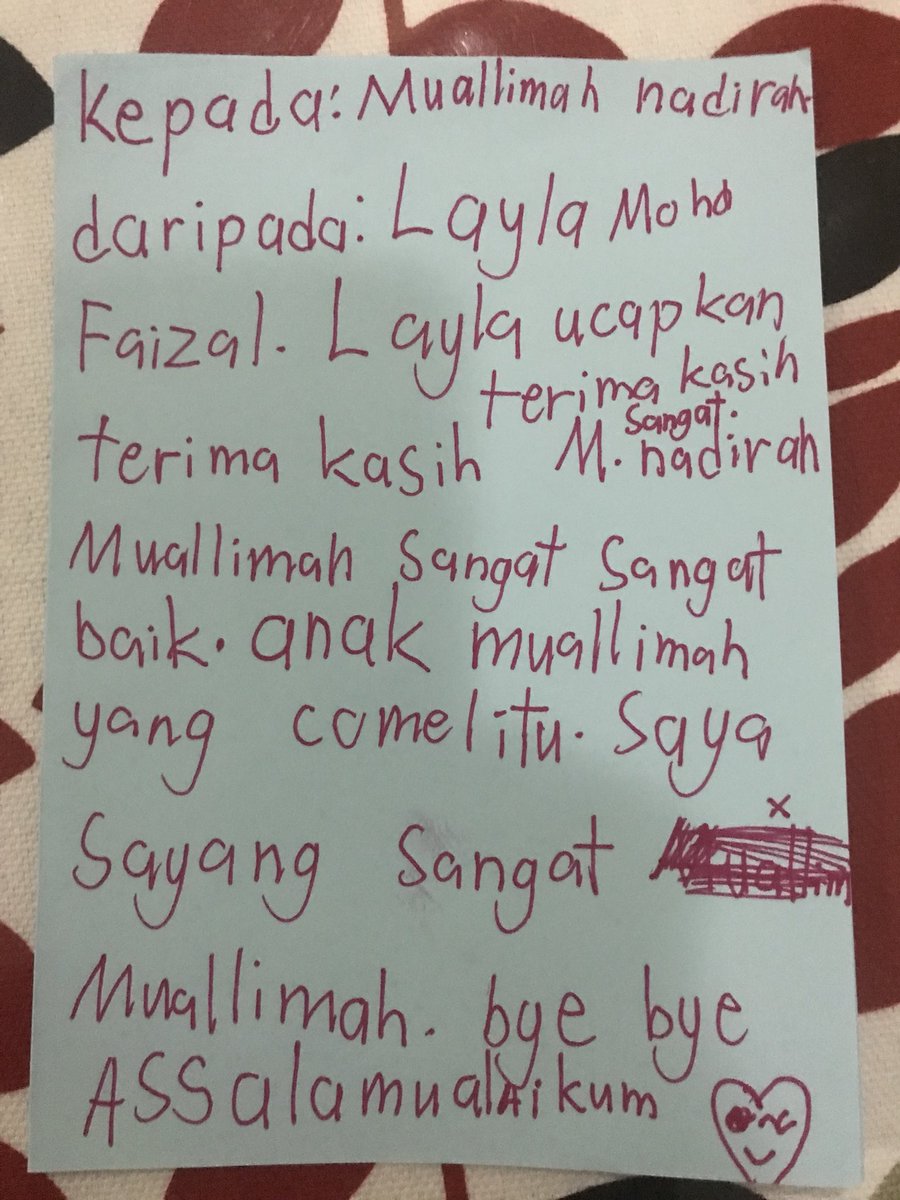 Kepada: Muallimah nadirah.
daripada: Layla Mohd
Faizal. Layla ucapkan
terima kasih
sangat.
terima kasih M. nadirah
Muallimah sangat sangat
baik. anak muallimah
yang comel itu. Saya
Sayang sangat
x
Muallimah. bye bye
ASSalamualAikum